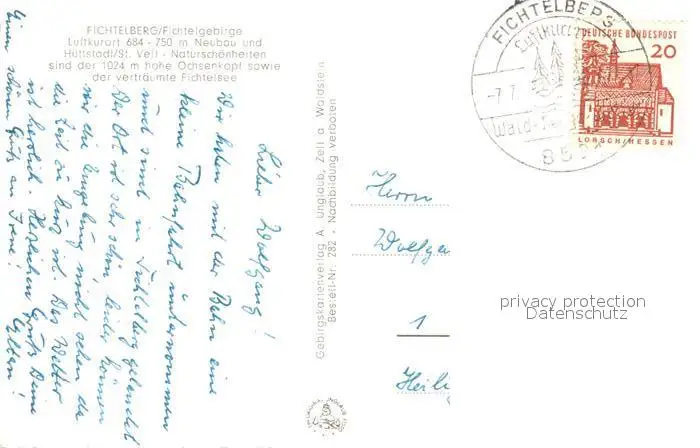 FICHTELBERG/Fichtelgebirge
Luftkurort 684 - 750 m Neubau und
Hüttstadl/St. Veit - Naturschönheiten
sind der 1024 m hohe Ochsenkopf sowie
der verträumte Fichtelsee
Lieber Wolfgang!
Wir haben mit der Bahn eine
kleine Bahnfahrt unternommen
und sind in Fichtelberg gelandet
Der Ort ist sehr schön, leider können
wir die Umgebung nicht sehen da
die Zeit zu kurz ist. Das Wetter
ist herrlich. Herzlichen Gruß Deine
Eltern!
Einen schönen Gruß an Irene!
Gebirgskartenverlag A. Unglaub, Zell a. Waldstein
Bestell-Nr. 282 - Nachbildung verboten
FICHTELBERG
Luftkur
-7.7
Wald-
859
DEUTSCHE BUNDESPOST
20
LORSCH/HESSEN
Herrn
Wolfga
1
Heili
privacy protection
Datenschutz